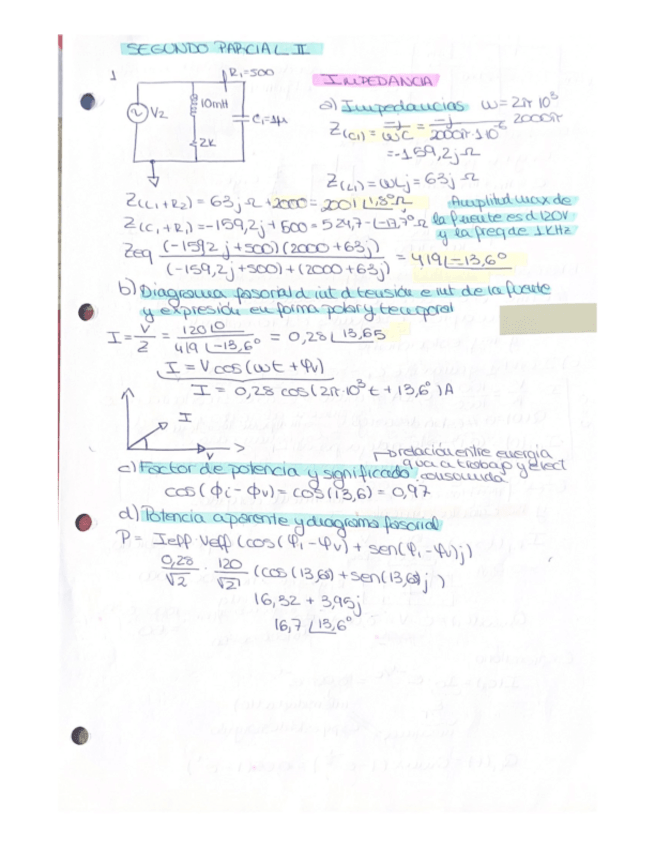 SEGUNDO PARCIAL II
1
R₁=500
10mH
V2
C₁=1μ
2K
IMPEDANCIA
a) Impedancias ω=2π 10³
2000π
Z(C₁) = -j/ωC = -j/2000π·1·10⁻⁶
=-159,2j Ω
Z(L₁)=ωLj=63j Ω
Z(L₁+R₂) = 63j Ω +2000= 2001 ∠1,8° Ω
Amplitud max de
Z(C₁+R₁)=-159,2j + 500 = 524,7 ∠-17,7° Ω
la fuente es d 120V
y la freq de 1KHz
Zeq (-159,2j+500)(2000+63j) / (-159,2j+500)+(2000+63j) = 419 ∠-13,6°
b) Diagrama fasorial d int d tensión e int de la fuente
y expresión en forma polar y temporal
I = V/Z = 120∠0 / 419∠-13,6° = 0,28 ∠13,65
I = V cos(ωt + φv)
I = 0,28 cos(2π·10³t + 13,6°)A
I
V
relación entre energía
c) Factor de potencia y significado
consumida
cos(ϕi - ϕv) = cos(13,6) = 0,97
d) Potencia aparente y diagrama fasorial
P = Ieff Veff (cos(φi-φv) + sen(φi-φv)j)
0,28/√2 · 120/√2 (cos(13,6) + sen(13,6)j)
16,32 + 3,95j
16,7 ∠13,6°